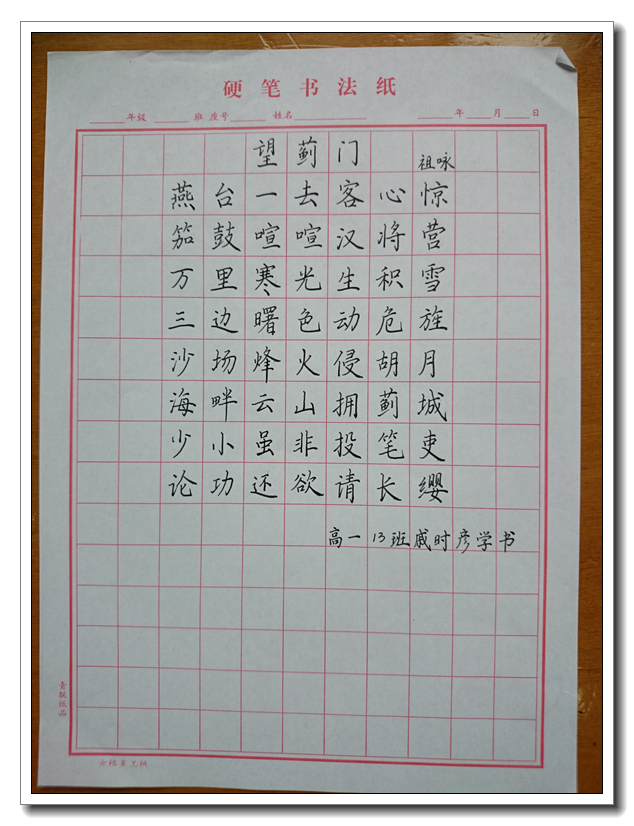 硬笔书法纸
年级 班 座号 姓名 年 月 日
望蓟门 祖咏
燕台一去客心惊
笳鼓喧喧汉将营
万里寒光生积雪
三边曙色动危旌
沙场烽火侵胡月
海畔云山拥蓟城
少小虽非投笔吏
论功还欲请长缨
高一13班戚时彦学书
青联纸品